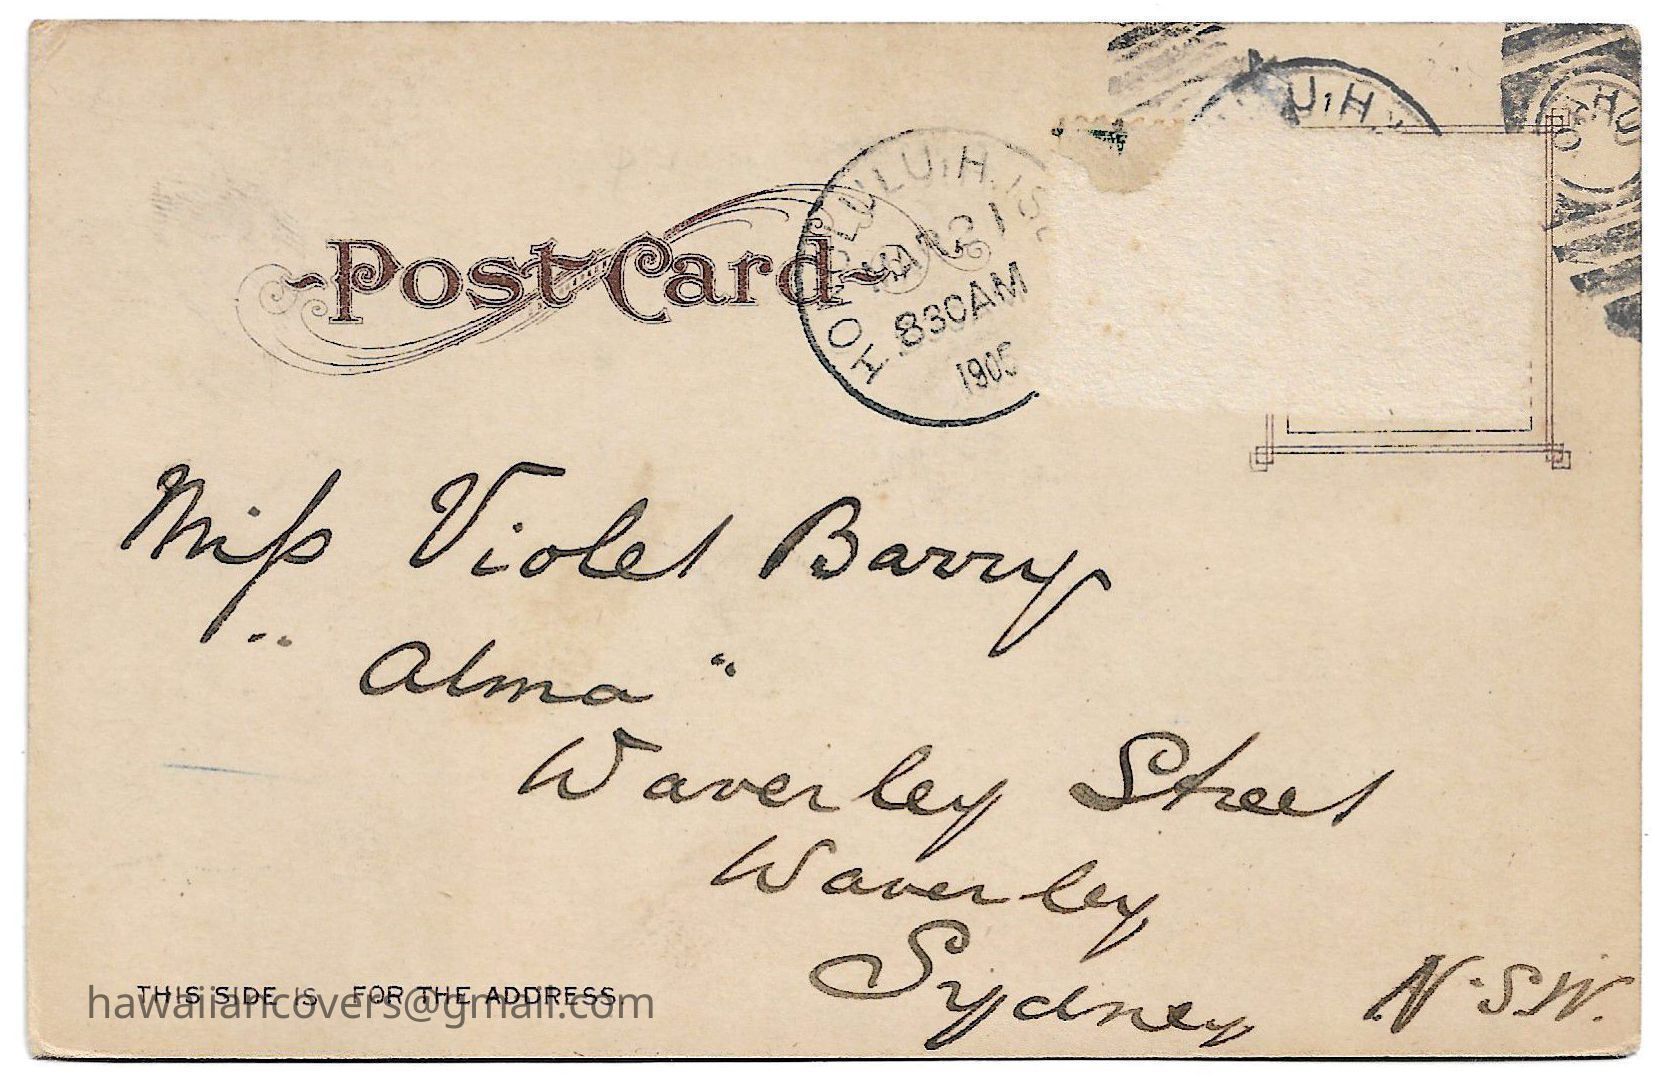 Post Card
HONOLULU, H. IS
MAR 21
830AM
1905
U, H.
OAHU
Miss Violet Barry
"Alma"
Waverley Street
Waverley
Sydney N.S.W.
THIS SIDE IS FOR THE ADDRESS
hawaiiancovers@gmail.com